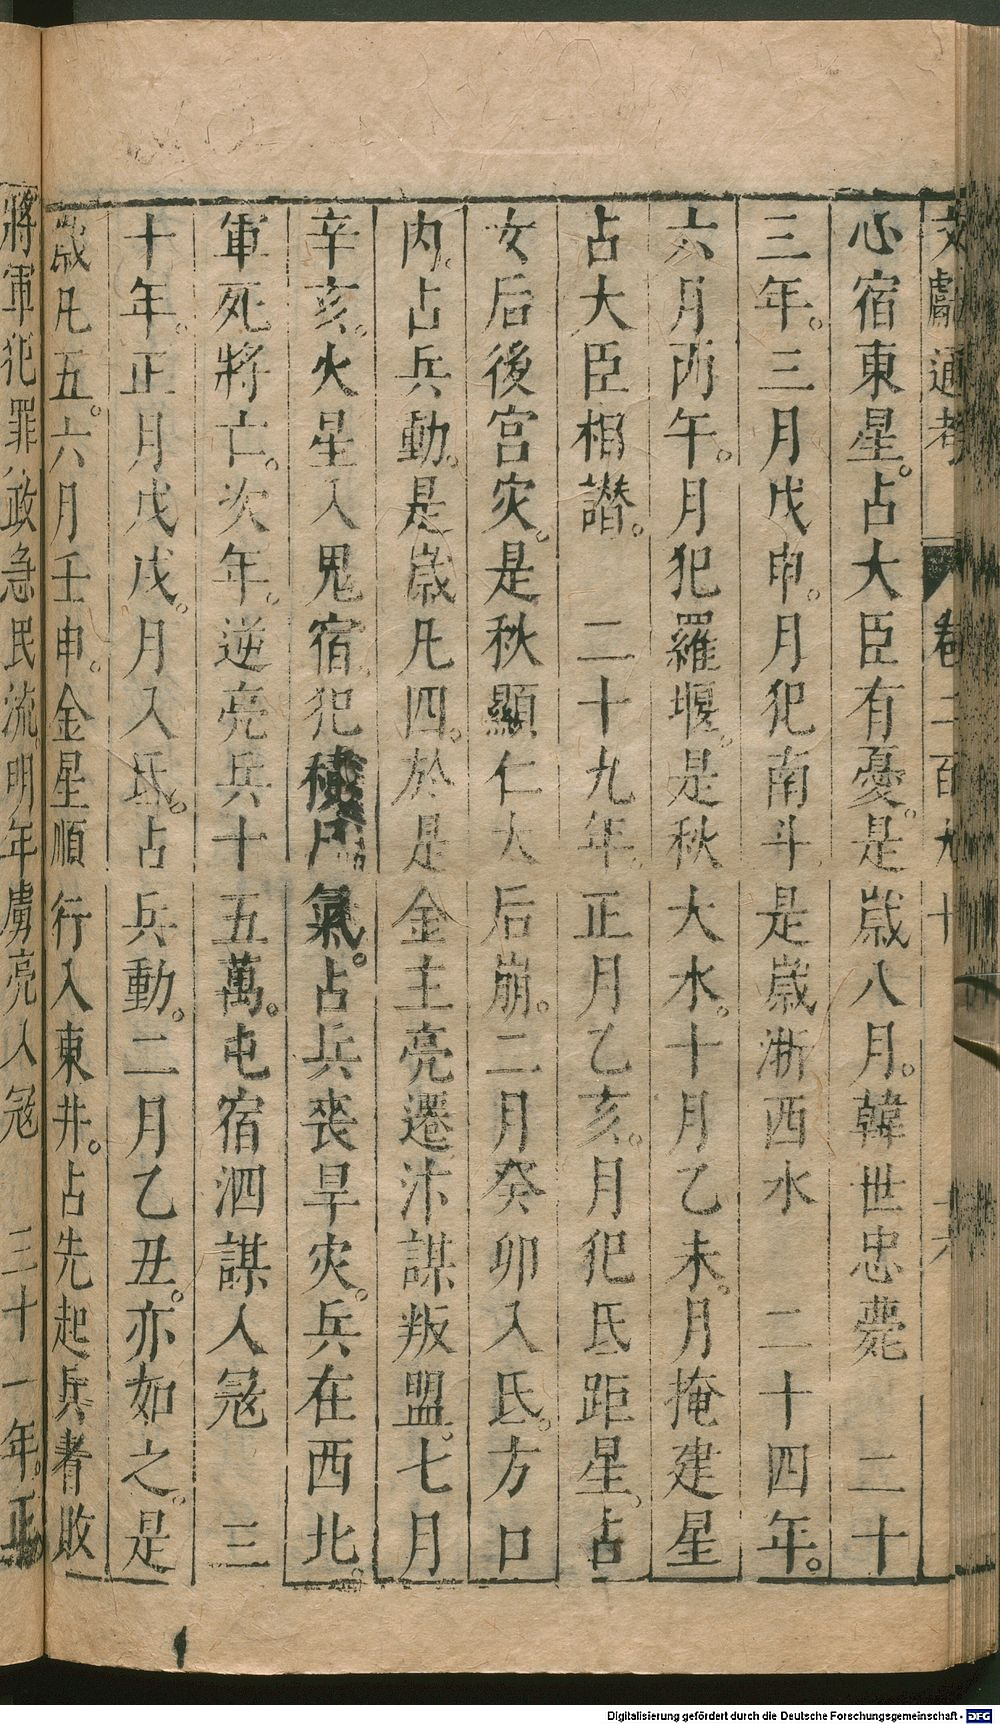 文獻通考 卷二百九十 十六
心宿東星。占大臣有憂。是歲八月。韓世忠薨 二十
三年。三月戊申。月犯南斗。是歲浙西水 二十四年。
六月丙午。月犯羅堰。是秋大水。十月乙未。月掩建星
占大臣相譖。 二十九年。正月乙亥。月犯氐距星。占
女后後宮灾。是秋顯仁太后崩。二月癸卯入氐。方口
內。占兵動。是歲凡四。於是金主亮遷汴謀叛盟。七月
辛亥。火星入鬼宿。犯積尸氣。占兵喪旱灾。兵在西北。
軍死將亡。次年。逆亮兵十五萬。屯宿泗謀入冦 三
十年。正月戊戌。月入氐。占兵動。二月乙丑。亦如之。是
歲凡五。六月壬申。金星順行入東井。占先起兵者敗
將軍犯罪政急民流。明年虜亮入冦 三十一年。正
Digitalisierung gefördert durch die Deutsche Forschungsgemeinschaft - DFG